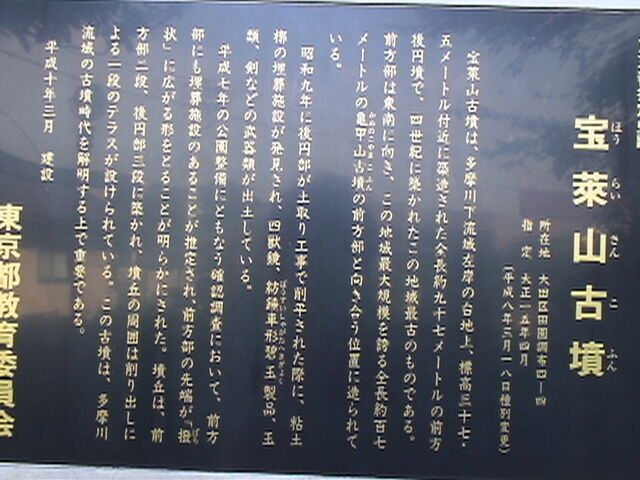 宝萊山古墳
ほうらいさんこふん
所在地 大田区田園調布四―四
指定 大正一五年四月
(平成八年三月一八日種別変更)
宝萊山古墳は、多摩川下流域左岸の台地上、標高三十七・
五メートル付近に築造された全長約九十七メートルの前方
後円墳で、四世紀に築かれたこの地域最古のものである。
前方部は東南に向き、この地域最大規模を誇る全長約百七
メートルの亀甲山古墳の前方部と向き合う位置に造られて
かめのこやまこふん
いる。
昭和九年に後円部が土取り工事で削平された際に、粘土
槨の埋葬施設が発見され、四獣鏡、紡錘車形碧玉製品、玉
ぼうすいしゃがたへきぎょく
類、剣などの武器類が出土している。
平成七年の公園整備にともなう確認調査において、前方
部にも埋葬施設のあることが推定され、前方部の先端が「撥
ばち
状」に広がる形をとることが明らかにされた。墳丘は、前
方部二段、後円部三段に築かれ、墳丘の周囲は削り出しに
よる一段のテラスが設けられている。この古墳は、多摩川
流域の古墳時代を解明する上で重要である。
平成十年三月 建設
東京都教育委員会